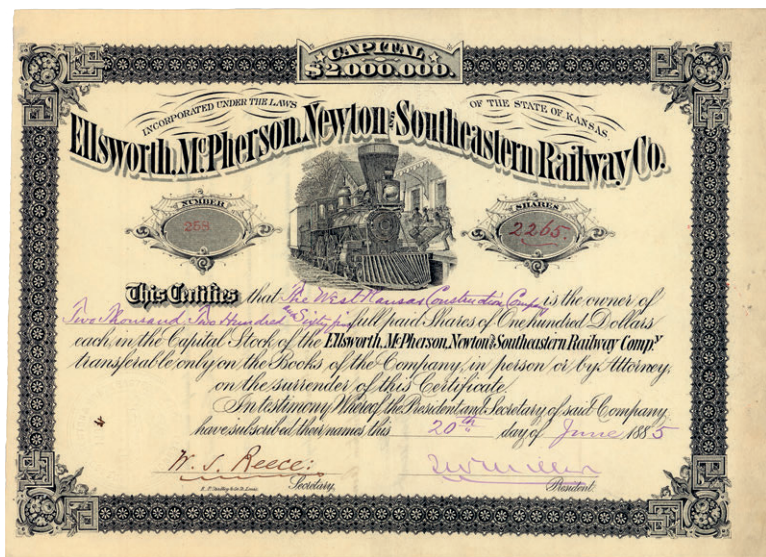 CAPITAL
$2.000.000.
INCORPORATED UNDER THE LAWS OF THE STATE OF KANSAS.
Ellsworth, McPherson, Newton and Southeastern Railway Co.
NUMBER
258
SHARES
2265.
This Certifies that The West Kansas Construction Compy is the owner of
Two Thousand Two Hundred and Sixty five full paid Shares of One Hundred Dollars
each, in the Capital Stock of the Ellsworth, McPherson, Newton and Southeastern Railway Compy
transferable only on the Books of the Company, in person or by Attorney,
on the surrender of this Certificate.
In testimony Whereof the President and Secretary of said Company
have subscribed their names this 20th day of June 1885
W. S. Reece:
Secretary.
President.